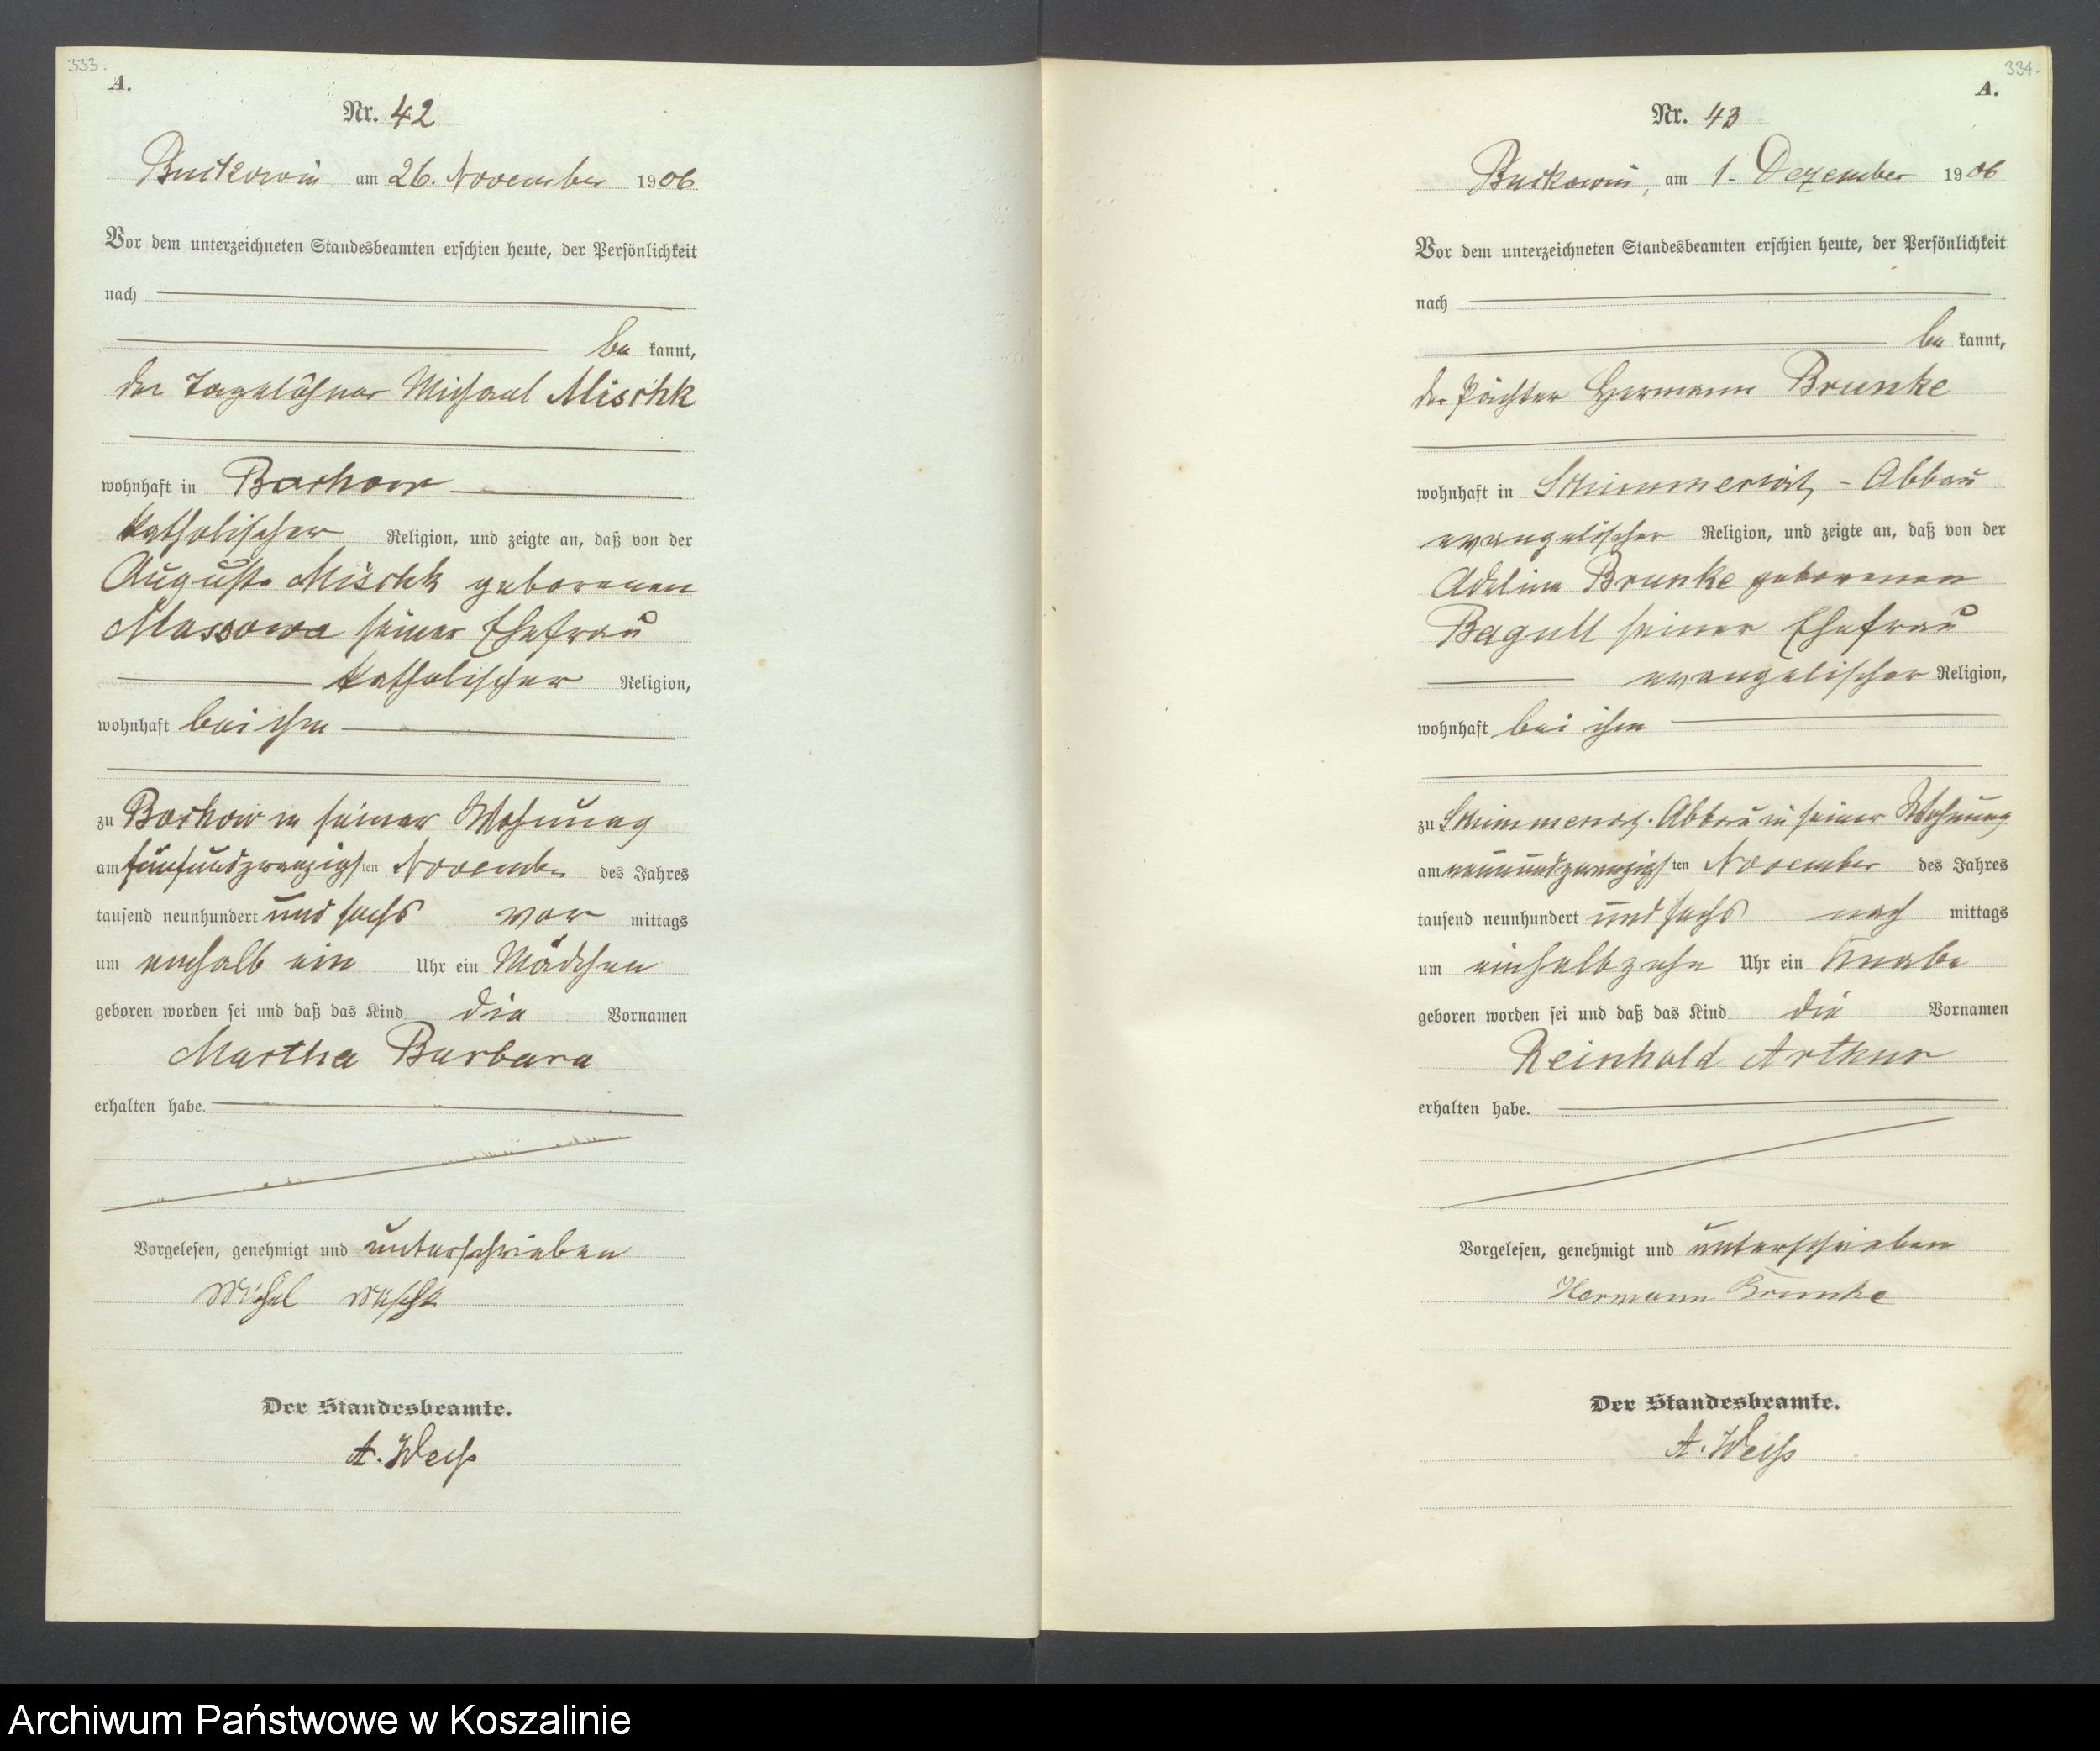 333.
A.
Nr. 42
Buckowin am 26. November 1906
Vor dem unterzeichneten Standesbeamten erschien heute, der Persönlichkeit
nach
be kannt,
der Tagelöhner Michael Mischk
wohnhaft in Bochow
katholischer Religion, und zeigte an, daß von der
Auguste Mischk geborenen
Massowa seiner Ehefrau
katholischer Religion,
wohnhaft bei ihm
zu Bochow in seiner Wohnung
am fünfundzwanzigsten November des Jahres
tausend neunhundert und sechs vor mittags
um einhalb ein Uhr ein Mädchen
geboren worden sei und daß das Kind die Vornamen
Martha Barbara
erhalten habe.
Vorgelesen, genehmigt und unterschrieben
Michel Mischk
Der Standesbeamte.
A. Weiß
334.
A.
Nr. 43
Buckowin, am 1. Dezember 1906
Vor dem unterzeichneten Standesbeamten erschien heute, der Persönlichkeit
nach
be kannt,
der Pächter Hermann Brunke
wohnhaft in Schimmerwitz - Abbau
evangelischer Religion, und zeigte an, daß von der
Adeline Brunke geborenen
Bagull seiner Ehefrau
evangelischer Religion,
wohnhaft bei ihm
zu Abbau in seiner Wohnung
am neunundzwanzigsten November des Jahres
tausend neunhundert und sechs nach mittags
um einhalbzehn Uhr ein Knabe
geboren worden sei und daß das Kind die Vornamen
Reinhold Arthur
erhalten habe.
Vorgelesen, genehmigt und unterschrieben
Hermann Brunke
Der Standesbeamte.
A. Weiß
Archiwum Państwowe w Koszalinie